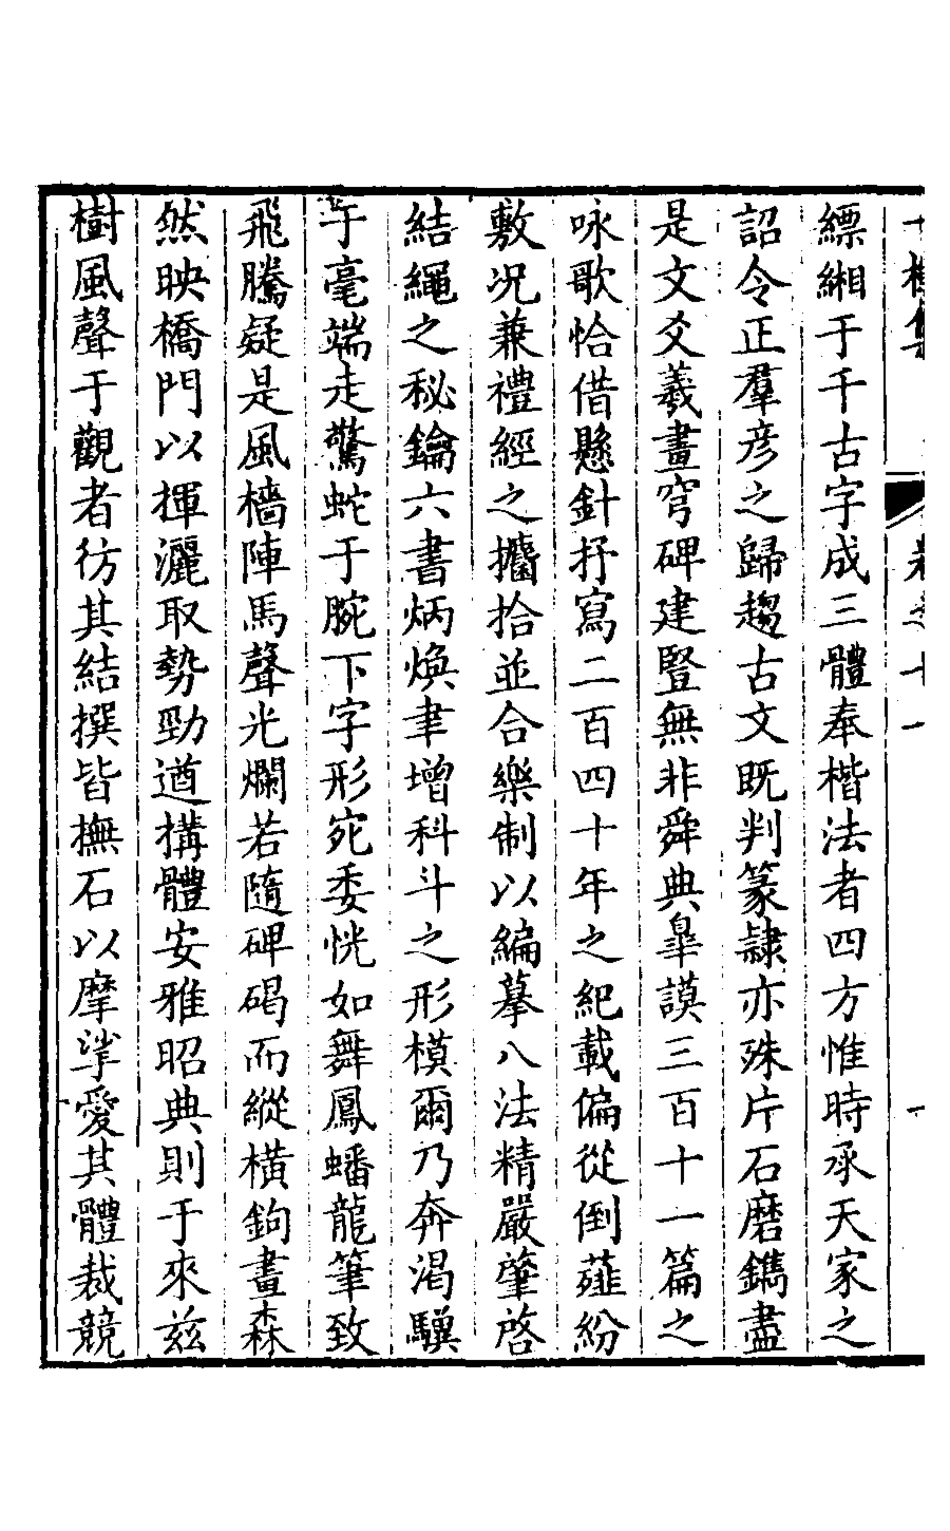 縹緗于千古字成三體奉楷法者四方惟時承天家之
詔令正羣彦之歸趨古文既判篆隷亦殊片石磨鐫盡
是文爻羲畫穹碑建豎無非舜典臯謨三百十一篇之
咏歌恰借懸針抒寫二百四十年之紀載偏從倒薤紛
敷况兼禮經之攟拾並合樂制以編摹八法精嚴肇啓
結繩之秘鑰六書炳煥聿增科斗之形模爾乃奔渴驥
于毫端走驚蛇于腕下字形宛委恍如舞鳳蟠龍筆致
飛騰疑是風檣陣馬聲光爛若隨碑碣而縱橫鉤畫森
然映橋門以揮灑取勢勁遒搆體安雅昭典則于來兹
樹風聲于觀者彷其結撰皆撫石以摩挲愛其體裁競